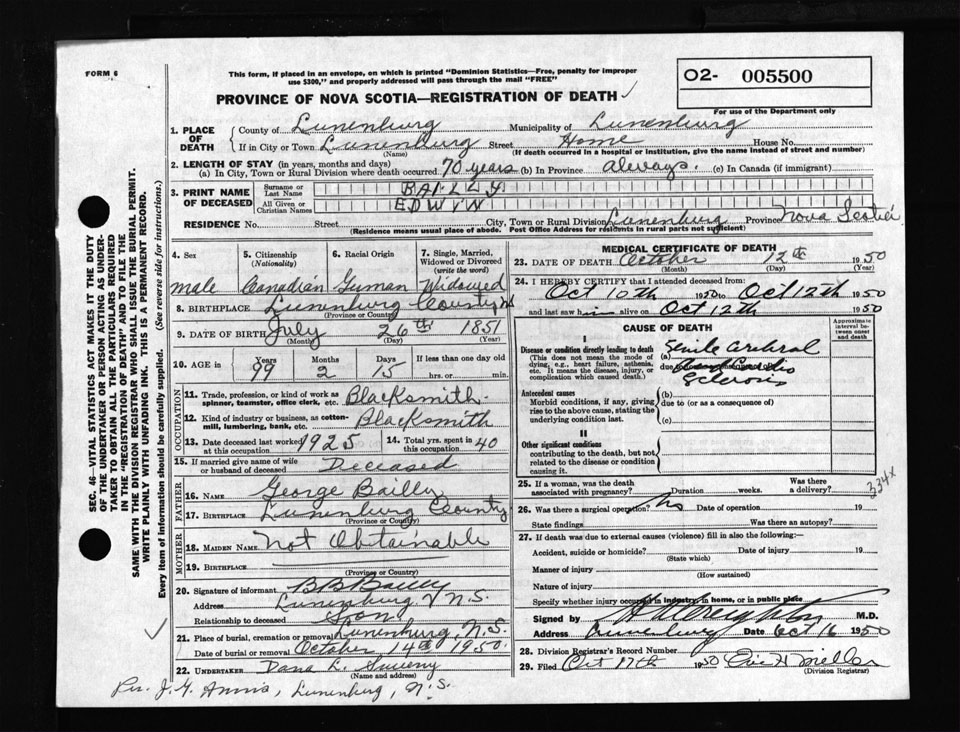 FORM 6
This form, if placed in an envelope, on which is printed "Dominion Statistics—Free, penalty for improper
use $300," and properly addressed will pass through the mail "FREE"
O2- 005500
For use of the Department only
PROVINCE OF NOVA SCOTIA—REGISTRATION OF DEATH ✓
1. PLACE OF DEATH { County of Lunenburg Municipality of Lunenburg
If in City or Town Lunenburg Street Home House No.
(Name) (If death occurred in a hospital or institution, give the name instead of street and number)
2. LENGTH OF STAY (in years, months and days)
(a) In City, Town or Rural Division where death occurred 70 years (b) In Province always (c) In Canada (if immigrant)
3. PRINT NAME OF DECEASED { Surname or Last Name BAILLY
All Given or Christian Names EDWIN
RESIDENCE No. Street City, Town or Rural Division Lunenburg Province Nova Scotia
(Residence means usual place of abode. Post Office Address for residents in rural parts not sufficient)
4. Sex 5. Citizenship (Nationality) 6. Racial Origin 7. Single, Married, Widowed or Divorced (write the word)
male Canadian German Widowed
8. BIRTHPLACE Lunenburg County NS
(Province or County)
9. DATE OF BIRTH July 26th 1851
(Month) (Day) (Year)
10. AGE in Years Months Days If less than one day old
99 2 15 hrs. or min.
OCCUPATION
11. Trade, profession, or kind of work as spinner, teamster, office clerk, etc. Blacksmith
12. Kind of industry or business, as cotton-mill, lumbering, bank, etc. Blacksmith
13. Date deceased last worked at this occupation 1925 14. Total yrs. spent in this occupation 40
15. If married give name of wife or husband of deceased Deceased
FATHER
16. Name George Bailly
17. Birthplace Lunenburg County
(Province or County)
MOTHER
18. Maiden Name Not Obtainable
19. Birthplace
(Province or County)
20. Signature of informant B B Bailly
Address Lunenburg N.S.
Relationship to deceased Son
21. Place of burial, cremation or removal Lunenburg, N.S.
Date of burial or removal October 14th 1950
22. UNDERTAKER Dana L. Sweeny
(Name and address)
Per. J. G. Lunenburg, N.S.
MEDICAL CERTIFICATE OF DEATH
23. DATE OF DEATH October 12th 1950
(Month) (Day) (Year)
24. I HEREBY CERTIFY that I attended deceased from:
Oct 10th 1950 to Oct 12th 1950
and last saw him alive on Oct 12th 1950
CAUSE OF DEATH
Approximate interval between onset and death
I
Disease or condition directly leading to death
(This does not mean the mode of dying, e.g., heart failure, asthenia, etc. It means the disease, injury, or complication which caused death.)
(a) Senile Cerebral
due to
Sclerosis
Antecedent causes
Morbid conditions, if any, giving rise to the above cause, stating the underlying condition last.
(b)
due to (or as a consequence of)
(c)
II
Other significant conditions
contributing to the death, but not related to the disease or condition causing it.
25. If a woman, was the death associated with pregnancy? Duration weeks. Was there a delivery?
334x
26. Was there a surgical operation? No Date of operation 19
State findings Was there an autopsy?
27. If death was due to external causes (violence) fill in also the following:—
Accident, suicide or homicide? Date of injury 19
(State which)
Manner of injury
(How sustained)
Nature of injury
Specify whether injury occurred in industry, in home, or in public place
Signed by M.D.
Address Lunenburg Date Oct 16 1950
28. Division Registrar's Record Number
29. Filed Oct 17th 1950
(Division Registrar)
SEC. 46—VITAL STATISTICS ACT MAKES IT THE DUTY
OF THE UNDERTAKER OR PERSON ACTING AS UNDER-
TAKER TO OBTAIN ALL THE PARTICULARS REQUIRED
IN THE "REGISTRATION OF DEATH" AND TO FILE THE
SAME WITH THE DIVISION REGISTRAR WHO SHALL ISSUE THE BURIAL PERMIT.
WRITE PLAINLY WITH UNFADING INK. THIS IS A PERMANENT RECORD.
Every item of information should be carefully supplied. (See reverse side for instructions.)